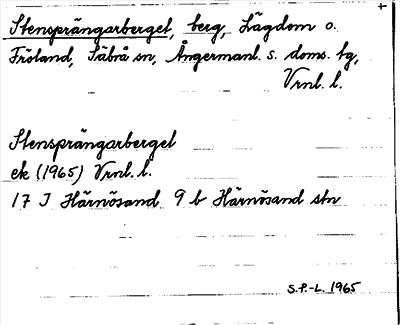 +
Stensprängarberget, berg, Lägdom o.
Fröland, Säbrå sn, Ångermanl. s. doms. tg,
Vrnl. l.
Stensprängarberget
ek (1965) Vrnl. l.
17 J Härnösand 9 b Härnösand stn
S.P.-L. 1965